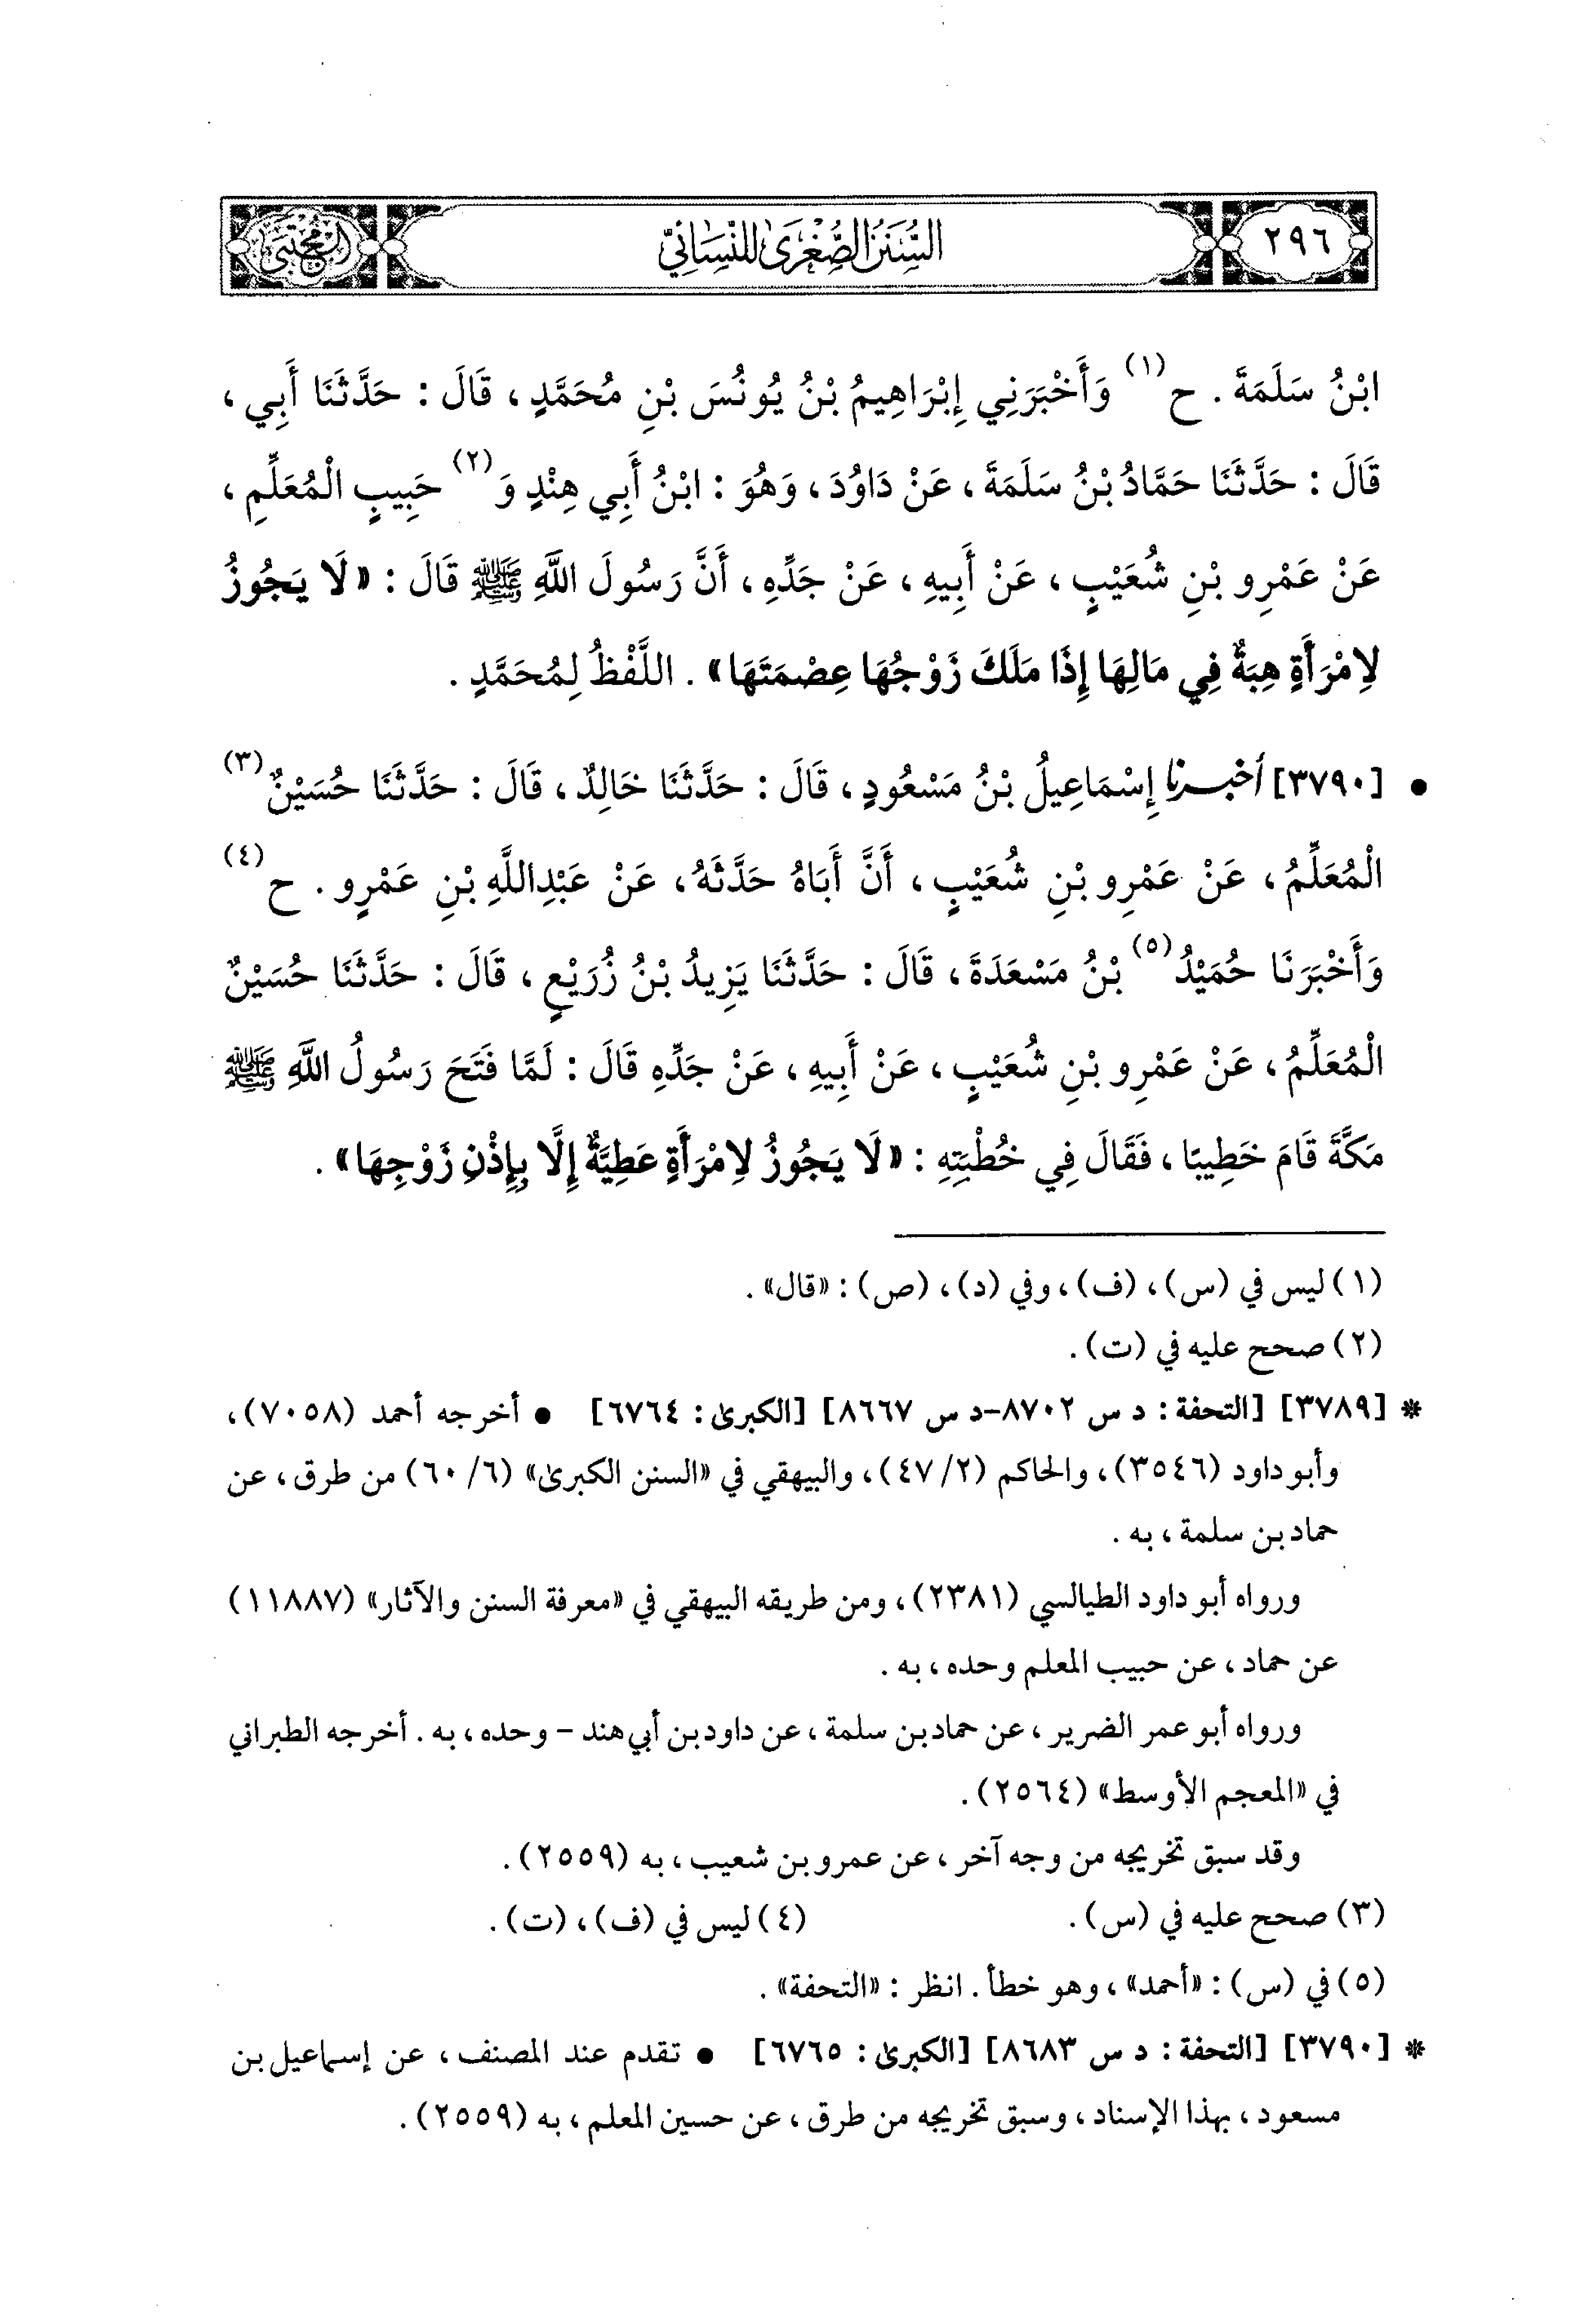 ٢٩٦
السُّنَنُ الصُّغْرَىٰ لِلنَّسَائِيِّ
المجتبى
ابْنُ سَلَمَةَ . ح (١) وَأَخْبَرَنِي إِبْرَاهِيمُ بْنُ يُونُسَ بْنِ مُحَمَّدٍ ، قَالَ : حَدَّثَنَا أَبِي ،
قَالَ : حَدَّثَنَا حَمَّادُ بْنُ سَلَمَةَ ، عَنْ دَاوُدَ ، وَهُوَ : ابْنُ أَبِي هِنْدٍ وَ (٢) حَبِيبٍ الْمُعَلِّمِ ،
عَنْ عَمْرِو بْنِ شُعَيْبٍ ، عَنْ أَبِيهِ ، عَنْ جَدِّهِ ، أَنَّ رَسُولَ اللَّهِ ﷺ قَالَ : «لَا يَجُوزُ
لِامْرَأَةٍ هِبَةٌ فِي مَالِهَا إِذَا مَلَكَ زَوْجُهَا عِصْمَتَهَا» . اللَّفْظُ لِمُحَمَّدٍ .
• [٣٧٩٠] أخبرنا إِسْمَاعِيلُ بْنُ مَسْعُودٍ ، قَالَ : حَدَّثَنَا خَالِدٌ ، قَالَ : حَدَّثَنَا حُسَيْنٌ (٣)
الْمُعَلِّمُ ، عَنْ عَمْرِو بْنِ شُعَيْبٍ ، أَنَّ أَبَاهُ حَدَّثَهُ ، عَنْ عَبْدِاللَّهِ بْنِ عَمْرٍو . ح (٤)
وَأَخْبَرَنَا حُمَيْدُ (٥) بْنُ مَسْعَدَةَ ، قَالَ : حَدَّثَنَا يَزِيدُ بْنُ زُرَيْعٍ ، قَالَ : حَدَّثَنَا حُسَيْنٌ
الْمُعَلِّمُ ، عَنْ عَمْرِو بْنِ شُعَيْبٍ ، عَنْ أَبِيهِ ، عَنْ جَدِّهِ قَالَ : لَمَّا فَتَحَ رَسُولُ اللَّهِ ﷺ
مَكَّةَ قَامَ خَطِيبًا ، فَقَالَ فِي خُطْبَتِهِ : «لَا يَجُوزُ لِامْرَأَةٍ عَطِيَّةٌ إِلَّا بِإِذْنِ زَوْجِهَا» .
(١) ليس في (س) ، (ف) ، وفي (د) ، (ص) : «قال» .
(٢) صحح عليه في (ت) .
* [٣٧٨٩] [التحفة : د س ٨٧٠٢-د س ٨٦٦٧] [الكبرىٰ : ٦٧٦٤] • أخرجه أحمد (٧٠٥٨) ،
وأبو داود (٣٥٤٦) ، والحاكم (٢/ ٤٧) ، والبيهقي في «السنن الكبرىٰ» (٦/ ٦٠) من طرق ، عن
حماد بن سلمة ، به .
ورواه أبو داود الطيالسي (٢٣٨١) ، ومن طريقه البيهقي في «معرفة السنن والآثار» (١١٨٨٧)
عن حماد ، عن حبيب المعلم وحده ، به .
ورواه أبو عمر الضرير ، عن حماد بن سلمة ، عن داود بن أبي هند - وحده ، به . أخرجه الطبراني
في «المعجم الأوسط» (٢٥٦٤) .
وقد سبق تخريجه من وجه آخر ، عن عمرو بن شعيب ، به (٢٥٥٩) .
(٣) صحح عليه في (س) . (٤) ليس في (ف) ، (ت) .
(٥) في (س) : «أحمد» ، وهو خطأ . انظر : «التحفة» .
* [٣٧٩٠] [التحفة : د س ٨٦٨٣] [الكبرىٰ : ٦٧٦٥] • تقدم عند المصنف ، عن إسماعيل بن
مسعود ، بهذا الإسناد ، وسبق تخريجه من طرق ، عن حسين المعلم ، به (٢٥٥٩) .